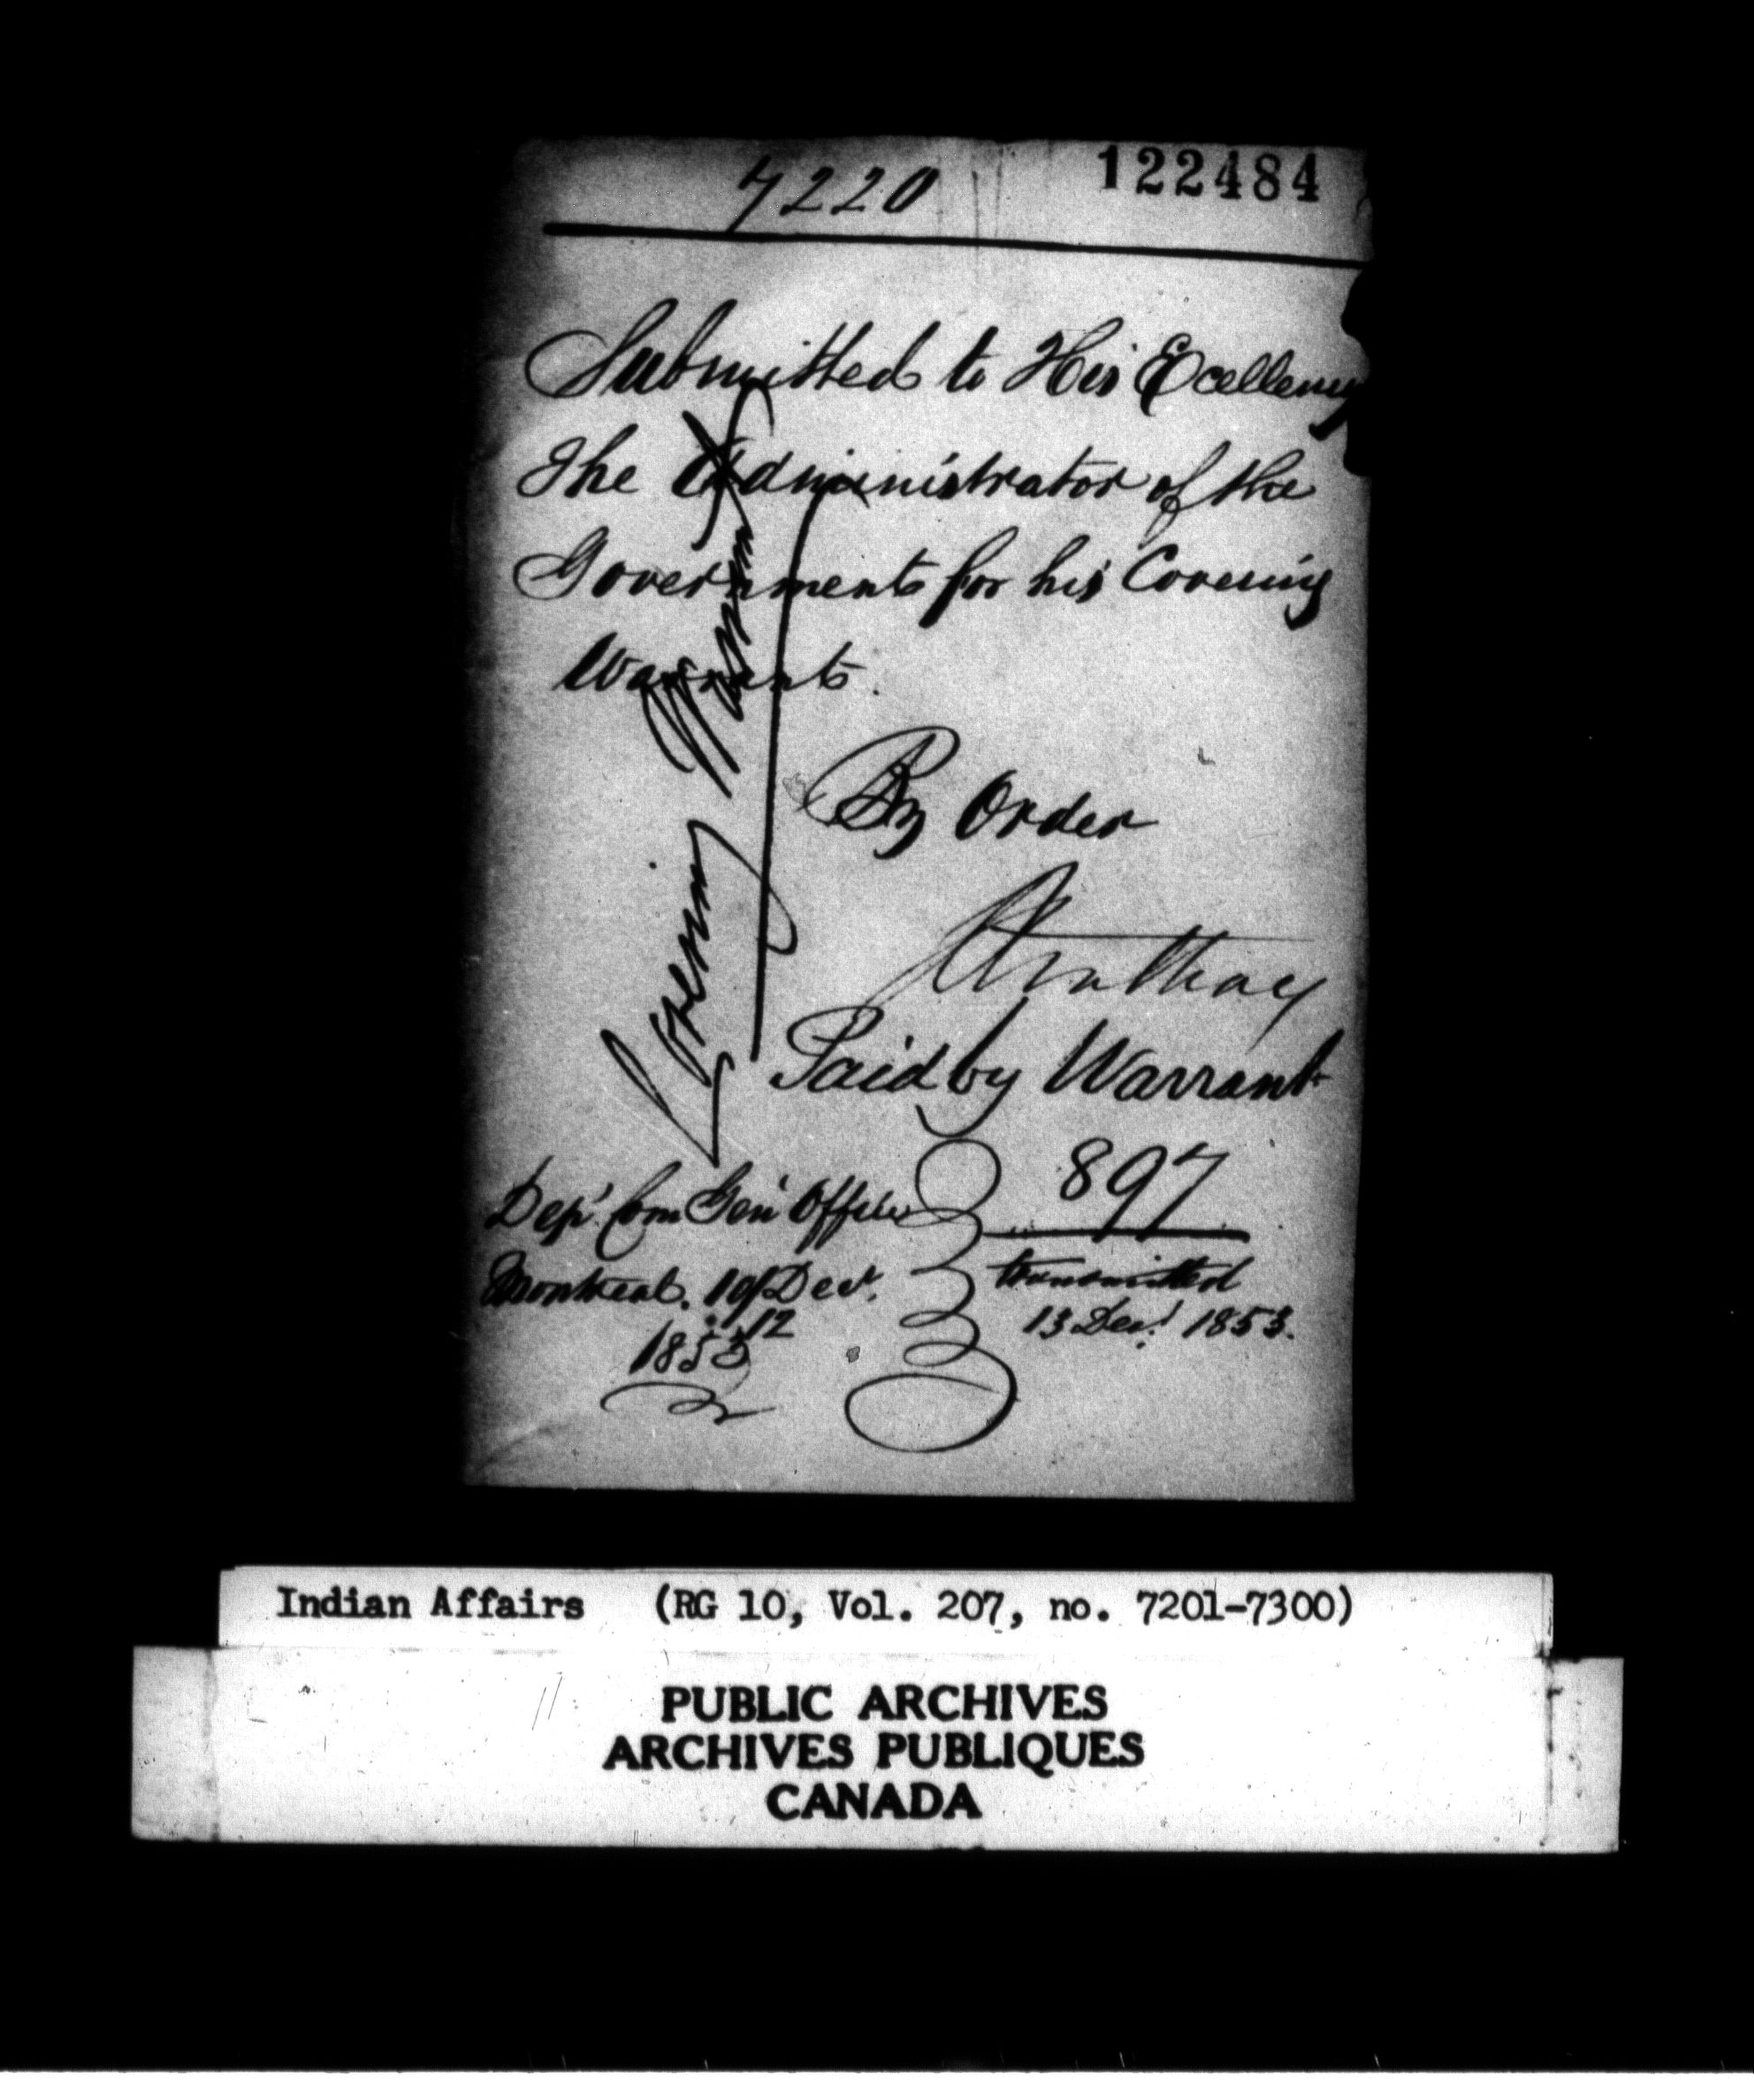 7220
122484
Submitted to His Excellency
The Administrator of the
Government for his Covering
Warrant.
Covering Warrant
By Order
Paid by Warrant
897
Dep. Com Gen Office
Montreal. 10 Decr.
12
1853
transmitted
13 Decr. 1853.
Indian Affairs (RG 10, Vol. 207, no. 7201-7300)
PUBLIC ARCHIVES
ARCHIVES PUBLIQUES
CANADA